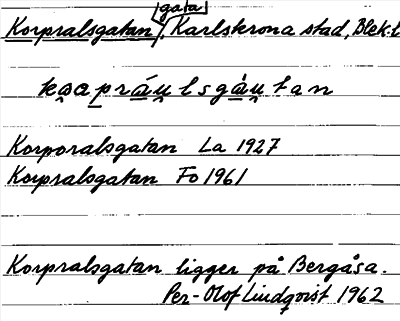 gata
Korpralsgatan, Karlskrona stad, Blek.l
Korporalsgatan La 1927
Korpralsgatan Fo 1961
Korpralsgatan ligger på Bergåsa.
Per-Olof Lindqvist 1962